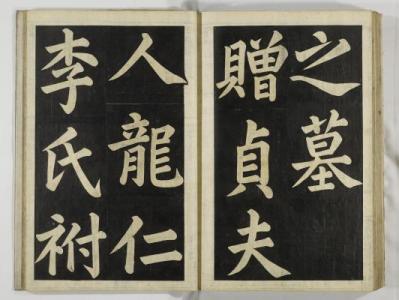 之墓
贈貞夫
人龍仁
李氏祔